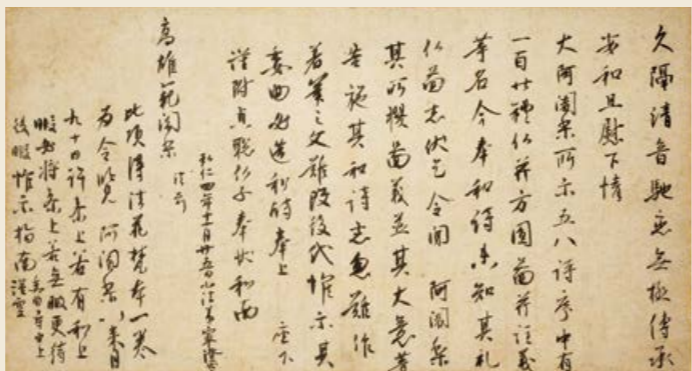 久隔清音馳恋無極傳承
安和且慰下情
大阿闍梨所示五八詩序中有
一百廿禮仏并方圓圖并註義
等名今奉和詩未知其礼
仏圖者伏乞令聞 阿闍梨
其所撰圖義並其大意等
告施其和詩者忽難作
著筆之文難改後代惟示其
委曲必造和詩奉上 座下
謹附貞聡仏子奉状和南
弘仁四年十一月廿五日小法弟最澄
高雄範闍梨 法前
此頃得法華梵本一巻
為令覧 阿闍梨以来月
九十日許参上若有和上
暇必将参上若無暇更待
後暇惟示指南謹空